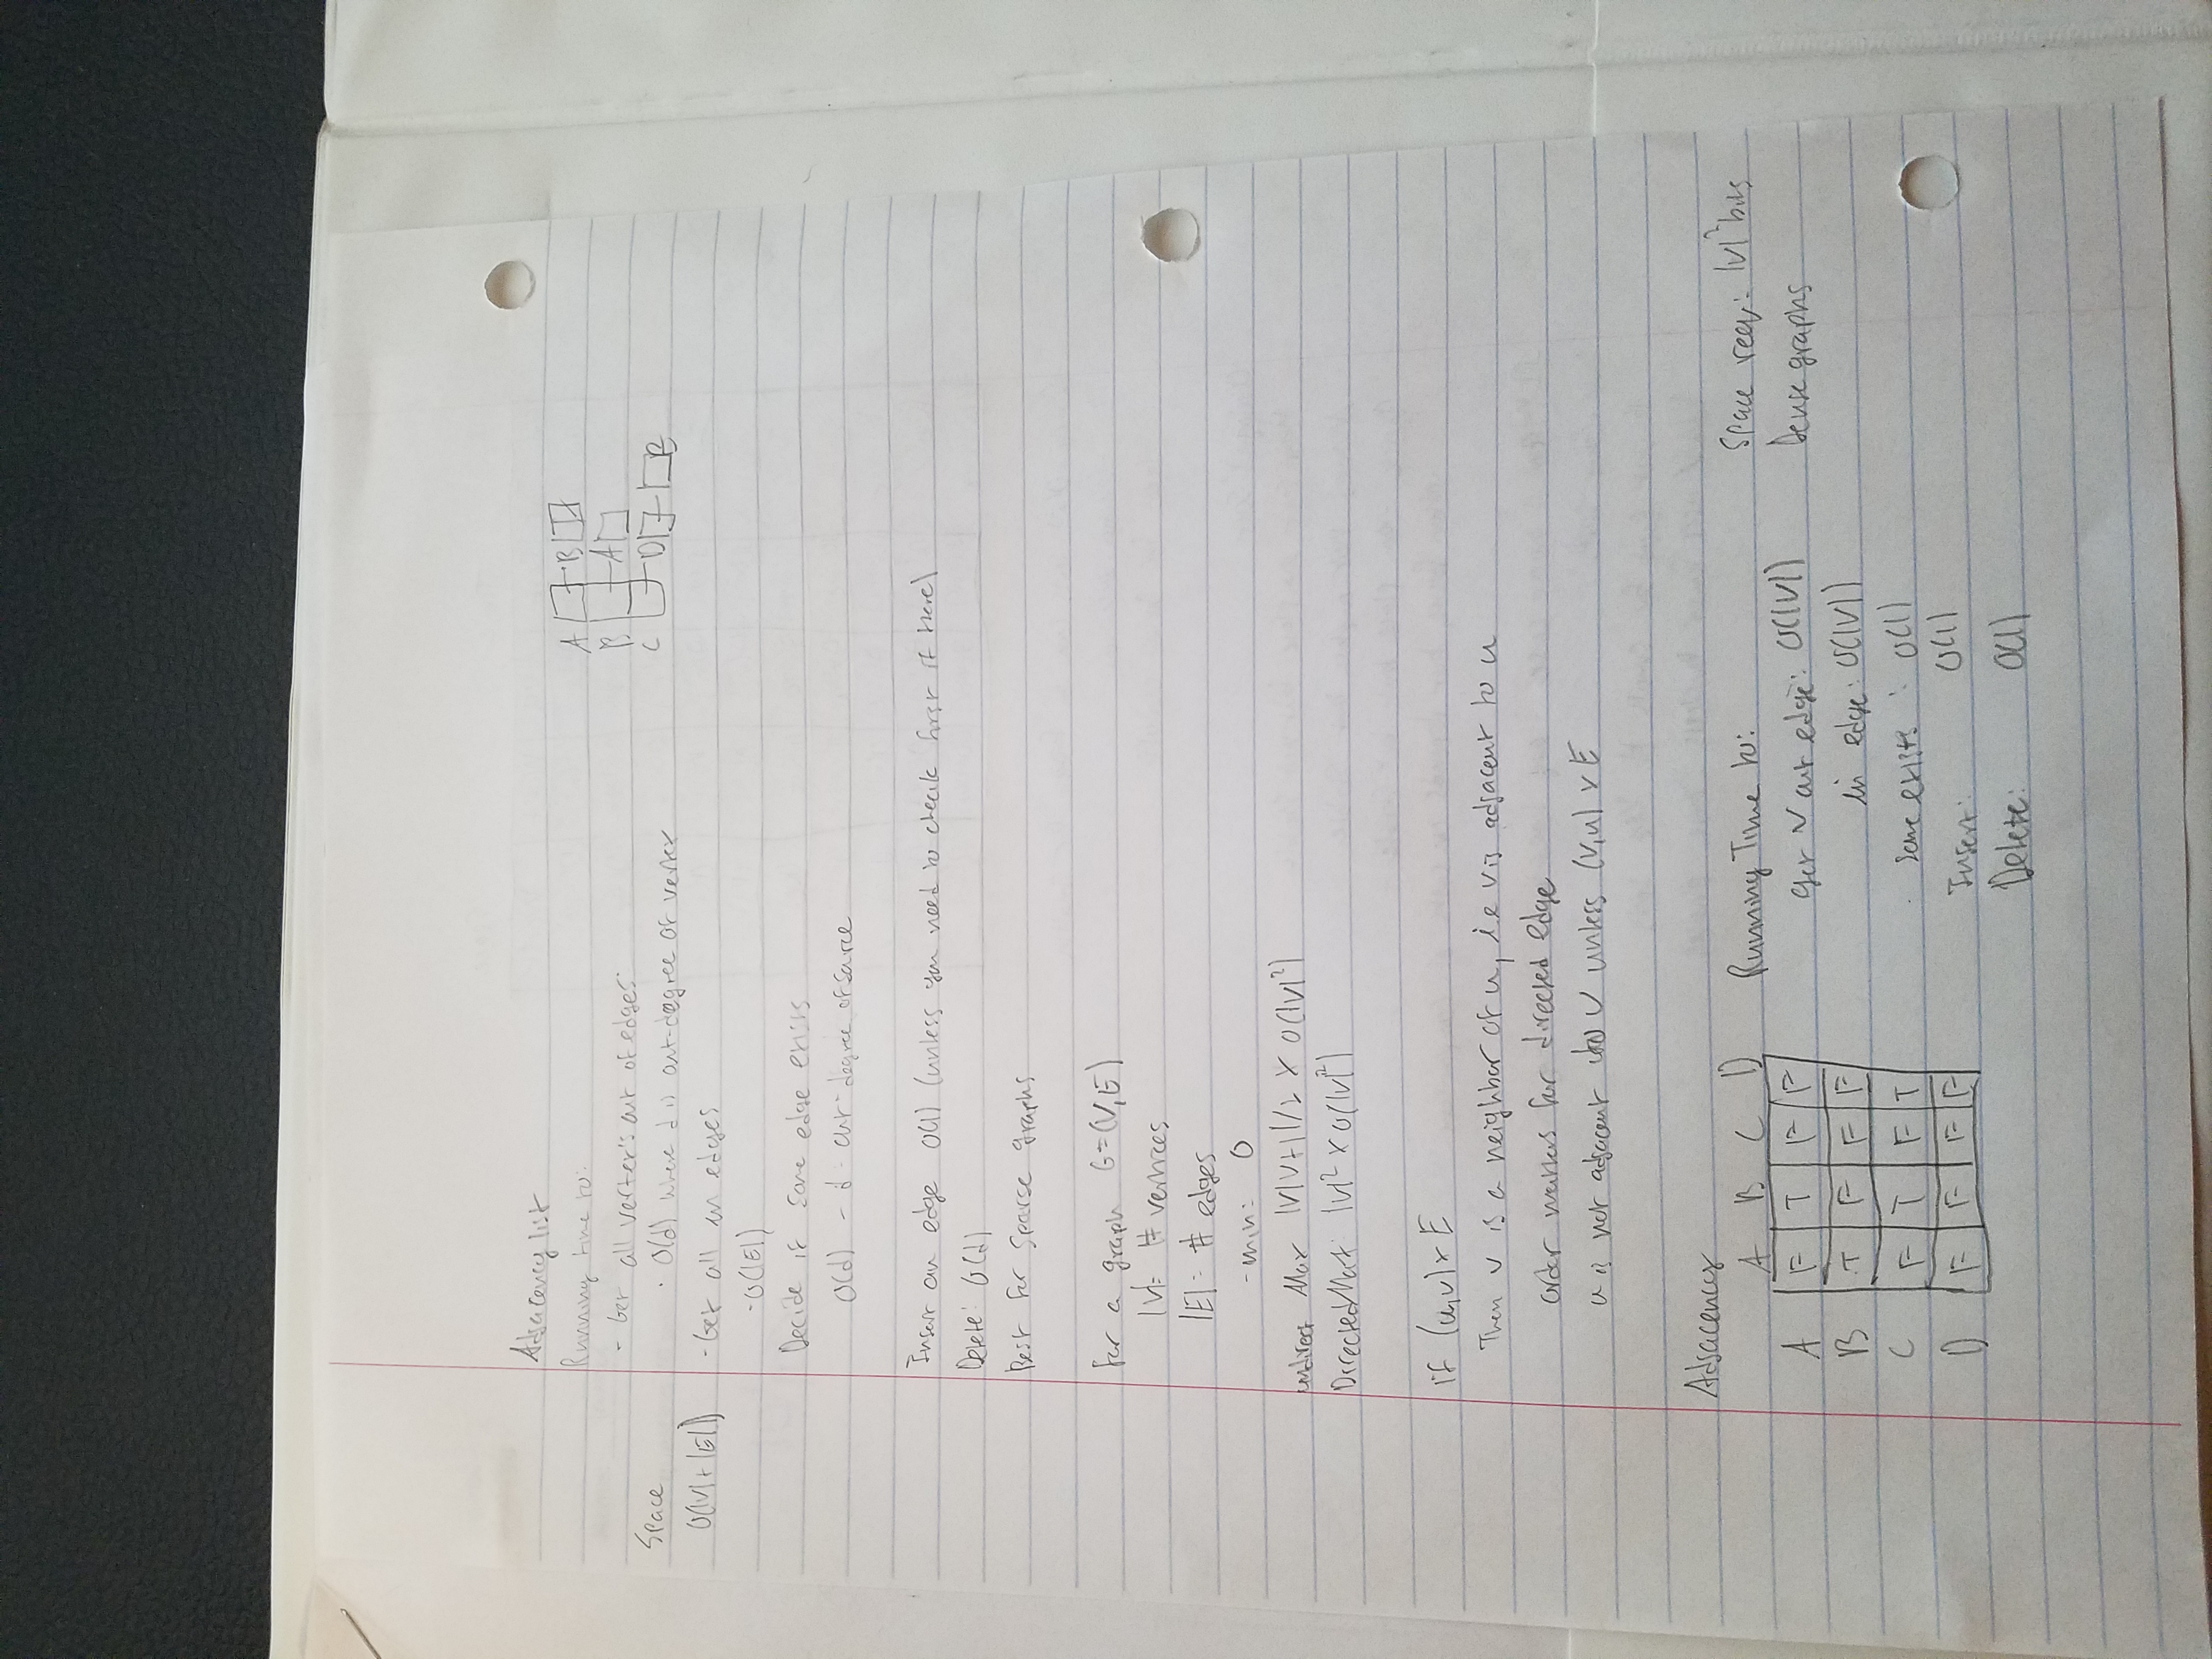 Adjacency list
Running time to:
- Get all vertex's out of edges
· O(d) where d is out-degree of vertex
Space
O(|V|+|E|)
- Get all in edges
- O(|E|)
Decide if some edge exists
O(d) - d - out-degree of source
A B
B A
C D B
Insert an edge O(1) (unless you need to check first if there)
Delete: O(d)
Best for sparse graphs
For a graph G=(V,E)
|V|= # vertices
|E|= # edges
- min: 0
undirect Max |V||V+1|/2 × O(|V|²)
Directed Max: |V|² × O(|V|²)
if (u,v) × E
Then v is a neighbor of u, i.e v is adjacent to u
order matters for directed edge
u is not adjacent to v unless (v,u) × E
Adjacency
A B C D
A F T F F
B T F F F
C F T F T
D F F F F
Running Time to:
get v out edge: O(|V|)
in edge: O(|V|)
some exists: O(1)
Insert: O(1)
Delete: O(1)
Space req: |V|² bits
Dense graphs